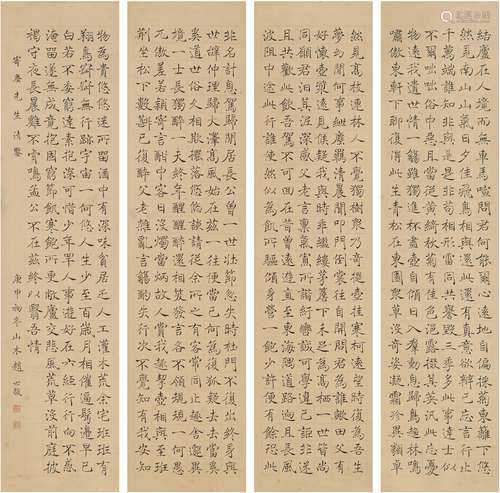 結廬在人境而無車馬喧問君何能尒心遠地自偏采菊東籬下悠
然見南山山氣日夕佳飛鳥相與還此還有真意欲辨已忘言行止
千萬端誰知非與是是非苟相形雷同共譽毀三季多此事達士似
不爾咄咄俗中惡且當從黃綺秋菊有佳色裛露掇其英汎此忘憂
物遠我遺世情一觴雖獨進杯盡壺自傾日入群動息歸鳥趨林鳴
嘯傲東軒下聊復得此生青松在東園眾草沒奇姿凝霜殄異類卓
然見高枝連林人不覺獨樹眾乃奇提壺挂寒柯遠望時復為吾生
夢幻間何事紲塵羈清晨聞叩門倒裳往自開問君為誰歟田父有
好懷壺漿遠見候疑我與時乖繿縷茅簷下未足為高栖一世皆尚
同願君汩其泥深感父老言稟氣寡所諧紆轡誠可學違己詎非迷
且共歡此飲吾駕不可回在昔曾遠遊直至東海隅道路迥且長風
波阻中途此行誰使然似為飢所驅傾身營一飽少許便有餘恐此
非名計息駕歸閒居長公曾一世壯節忽失時杜門不復出終身與
世辭仲理歸大澤高風始在茲一往便當已何為復狐疑去去當奚
道世俗久相欺擺落悠悠談請從余所之有客常同止趣舍邈異
境一士長獨醉一夫終年醒醒醉還相笑發言各不領規規一何愚
兀傲差若穎寄言酣中客日沒燭當炳故人賞我趣挈壺相與至班
荊坐松下數斟已復醉父老雜亂言觴酌失行次不覺知有我安知
物為貴悠悠迷所留酒中有深味貧居乏人工灌木荒余宅班班有
翔鳥寂寂無行跡宇宙一何悠人生少至百歲月相催逼鬢邊早已
白若不委窮達素抱深可惜少年罕人事遊好在六經行行向不惑
淹留遂無成竟抱固窮節飢寒飽所更敝廬交悲風荒草沒前庭披
褐守夜長晨雞不肯鳴孟公不在茲終以翳吾情
先生清鑒
庚申初冬山木趙世駿